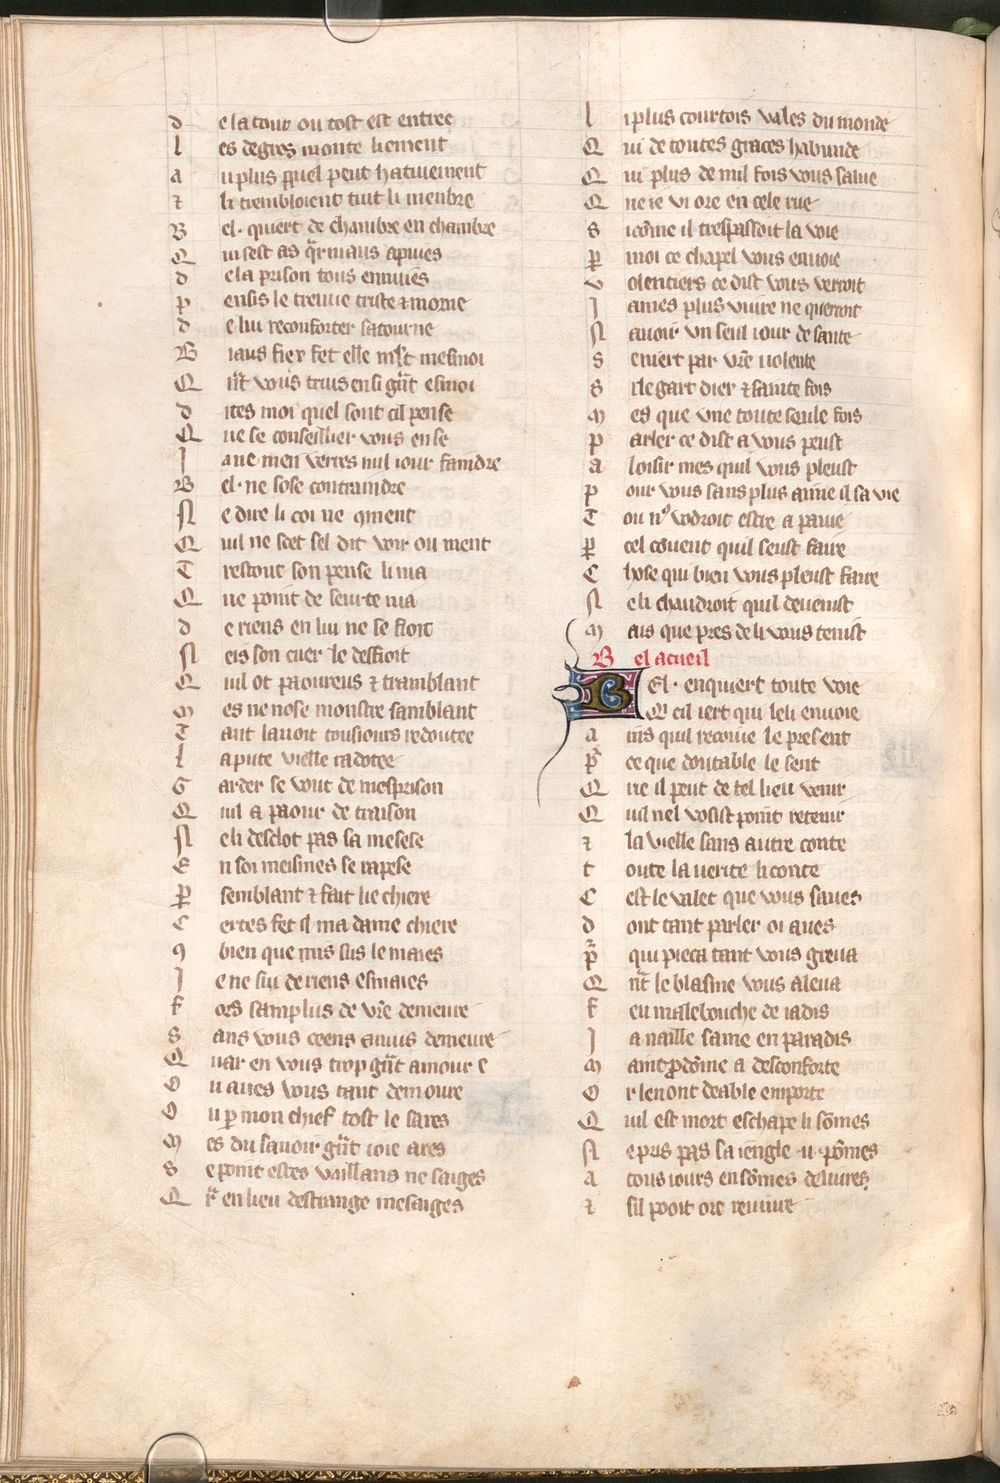 d e la tour ou tost est entree
l es degres monte liement
a u plus q̃uel peut hatiuement
⁊ li trembloient tuit li menbre
B el· quiert de chambre en chambre
Q ui sest as q̃rniaus apuies
d e la prison tous ennuies
p ensis le treuue triste ⁊ morne
d e lui reconforter satourne
B iaus fiex fet elle
Q ñt vous truis en si gñt esmoi
d ites moi quel sont cil pense
Q ue se conseillier vous en se
J a ne men verres nul iour faindre
B el· ne sose contraindre
N e dire li coi ne 9ment
Q uil ne scet sel dit voir ou ment
T restout son pense li nia
Q ue point de seurte nia
d e riens en lui ne se fioit
N eis son cuer le desfioit
Q uil ot paoureus ⁊ tramblant
M es ne nose monstre samblant
T ant lauoit tousiours redoutee
l a pute vielle radotee
G arder se vout de mesprison
Q uil a paour de traison
N e li desclot pas sa mesese
E n soi meismes se rapese
P semblant ⁊ fait lie chiere
C ertes fet il ma dame chiere
9 bien que mis sus le maies
J e ne sui de riens esmaies
F ors sanz plus de vr̃e demeure
S ans vous ceens enuis demeure
Q uar en vous trop gñt amour e
O u aues vous tant demoure
O u p mon chief tost le sares
M es du sauoir gñt ioie ares
S e point estes vaillans ne saiges
Q r̃ en lieu destrange mesaiges
l i plus courtois vales du monde
Q ui de toutes graces habunde
Q ui plus de mil fois vous salue
Q ue ie vi ore en cele rue
S icõme il trespassoit la voie
P moi ce chapel vous enuoie
V olentiers ce dist vous verroit
J ames plus viure ne querroit
N auoir vn seul iour de sante
S e niert par vr̃e uolente
S i le gart dier ⁊ sainte fois
M es que vne toute seule fois
P arler ce dist a vous peust
a loisir mes quil vous pleust
P our vous sans plus aime il sa vie
T ou nu vodroit estre a pauie
P cel couent quil seust faire
C hose qui bien vous pleust faire
N e li chaudroit quil deuenist
M ais que pres de li vous tenist
B el acueil
BEl· enquiert toute voie
Q cil iert qui le li enuoie
a ins quil recoiue le present
P ce que doutable le sent
Q ue il peut de tel lieu venir
Q uil nel vosist point retenir
⁊ la vielle sans autre conte
t oute la uerite li conte
C est le valet que vous saues
d ont tant parler oi aues
P qui pieca tant vous greua
Q ñt le blasme vous aleua
F eu malebouche de iadis
J a naille same en paradis
M aint p̃dõme a desconforte
O r lenont deable emporte
Q uil est mort eschape li sõmes
N e pris pas sa iengle ·ii· põmes
a tous iours en sõmes deliures
⁊ sil pooit ore reuiure